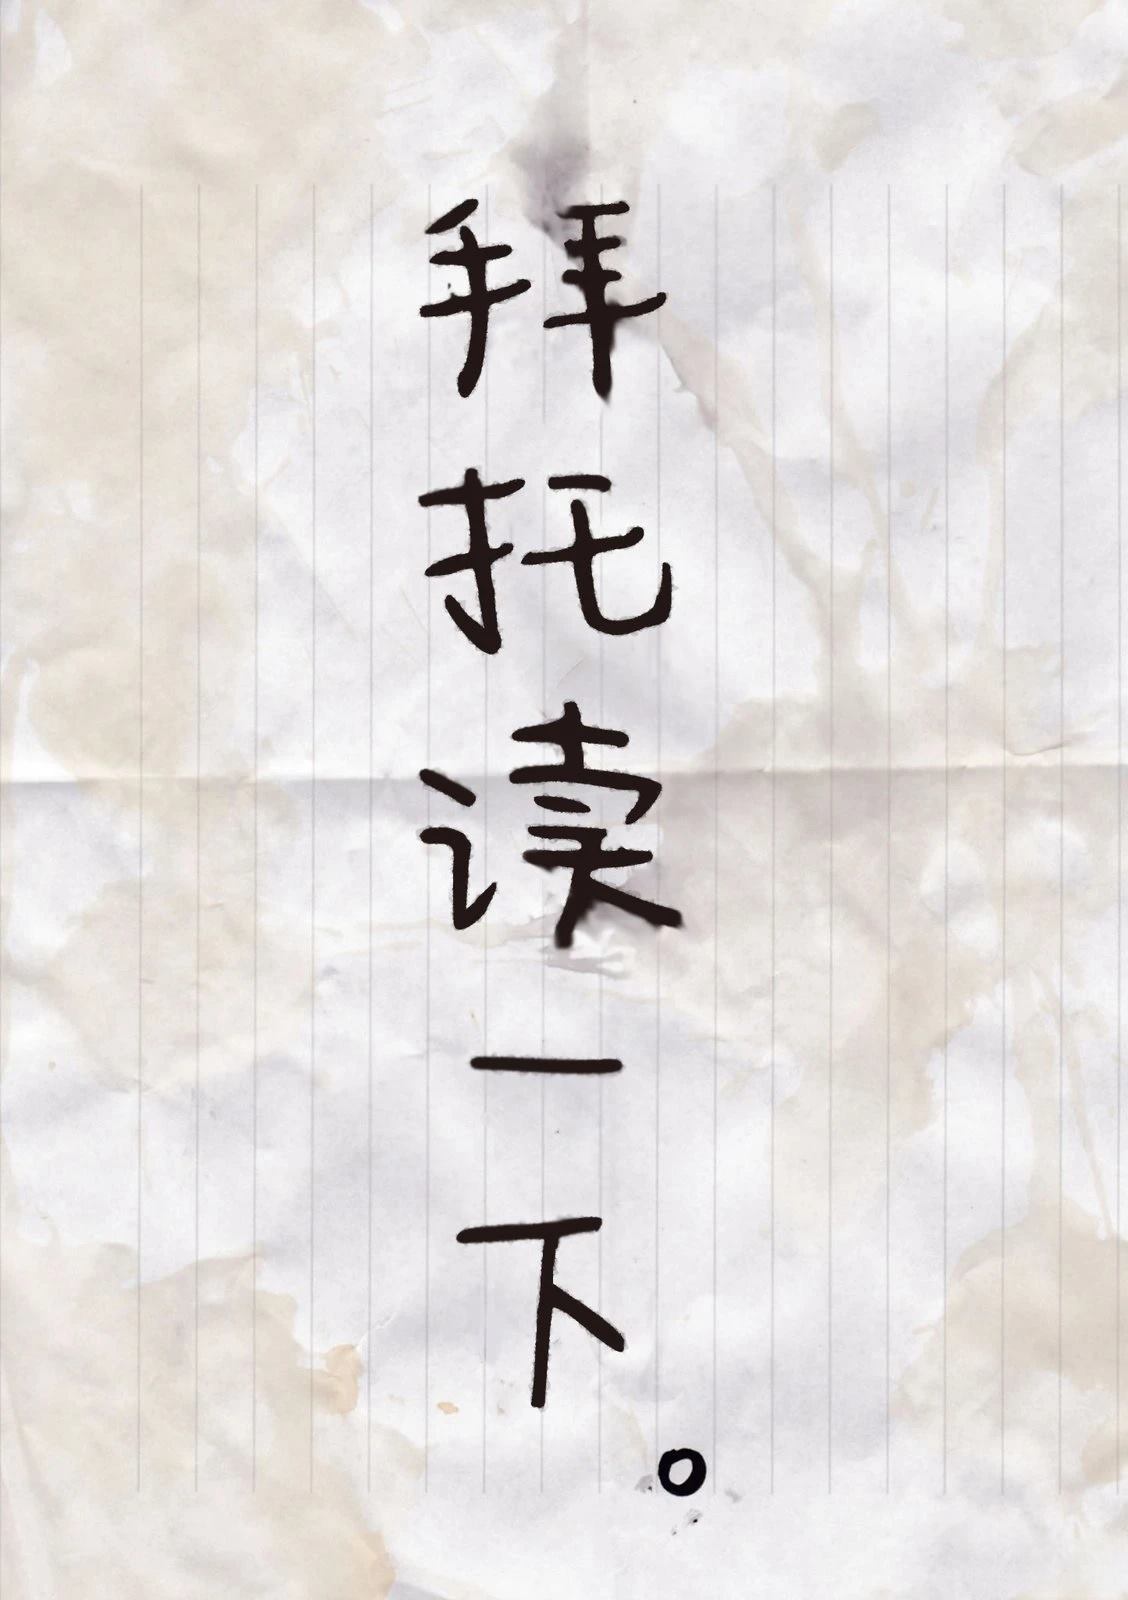 拜托读一下。